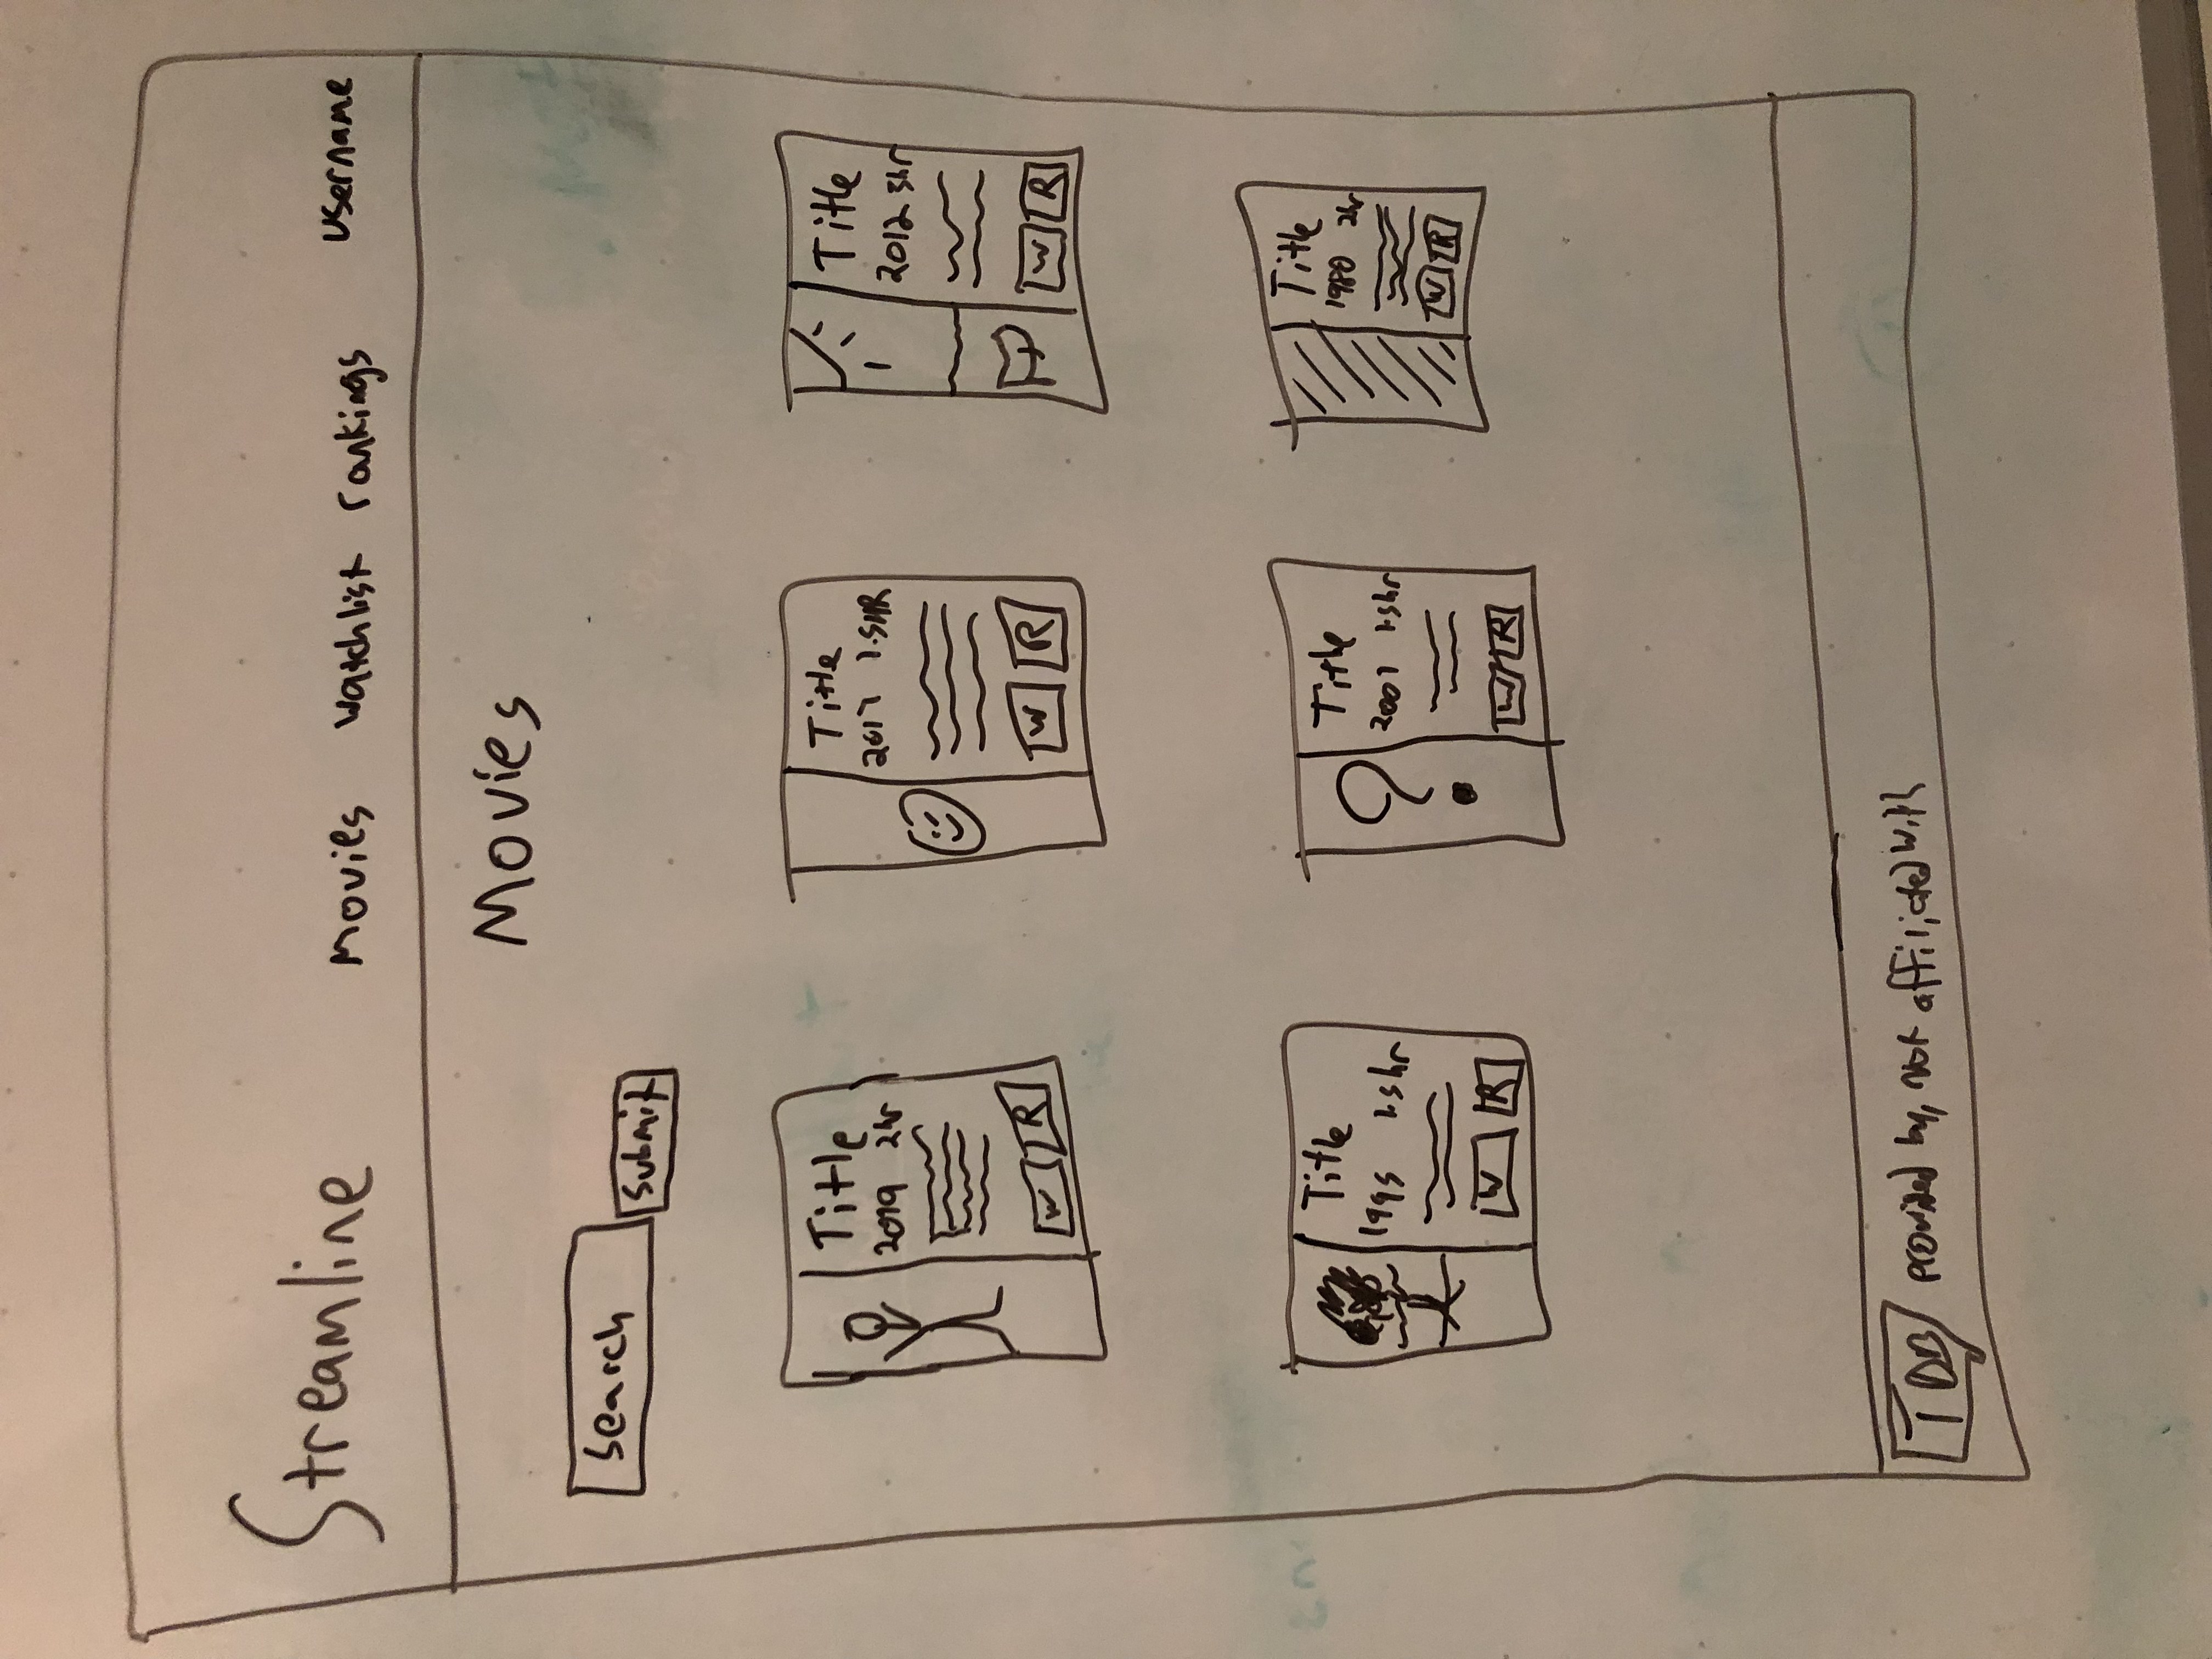 Streamline
Movies watchlist rankings username
Movies
Search
Submit
Title
2019 2hr
W R
Title
2017 1.5HR
W R
Title
2012 3hr
W R
Title
1995 1.5hr
W R
Title
2001 1.5hr
W R
Title
1980 2hr
W R
TDB provided by, not affiliated with